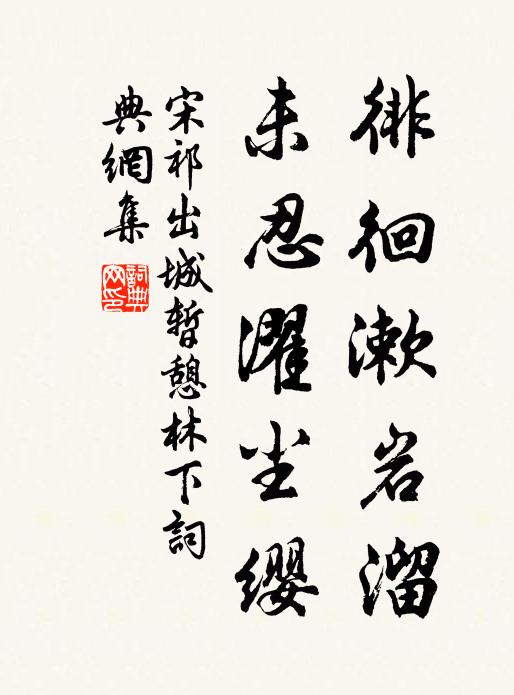 徘徊漱岩溜
未忍濯尘缨
宋祁出城暫憩林下詞
典網集
詞典网印